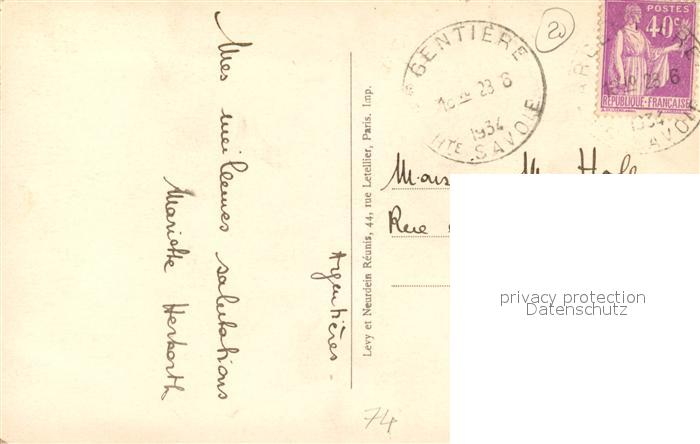 Mes meilleures salutations
Mariette Herborth
Argentières.
Levy et Neurdein Réunis, 44, rue Letellier, Paris. Imp.
GENTIÈRE
23 6
1934
HTE SAVOIE
20
POSTES
40c
RÉPUBLIQUE-FRANÇAISE
23 6
1934
SAVOIE
Rue
privacy protection
Datenschutz
74